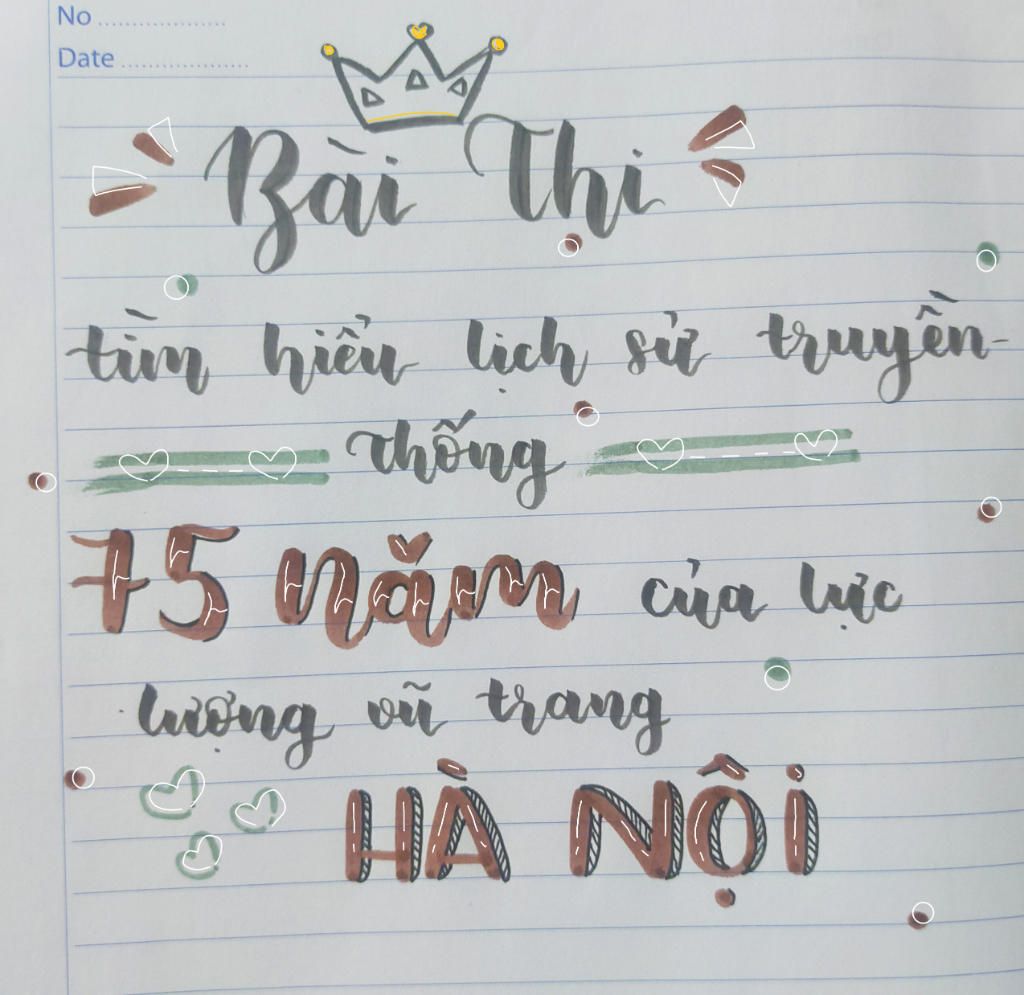 No ...................
Date ...................
Bài Thi
tìm hiểu lịch sử truyền-
thống
75 năm của lực
lượng vũ trang
HÀ NỘI